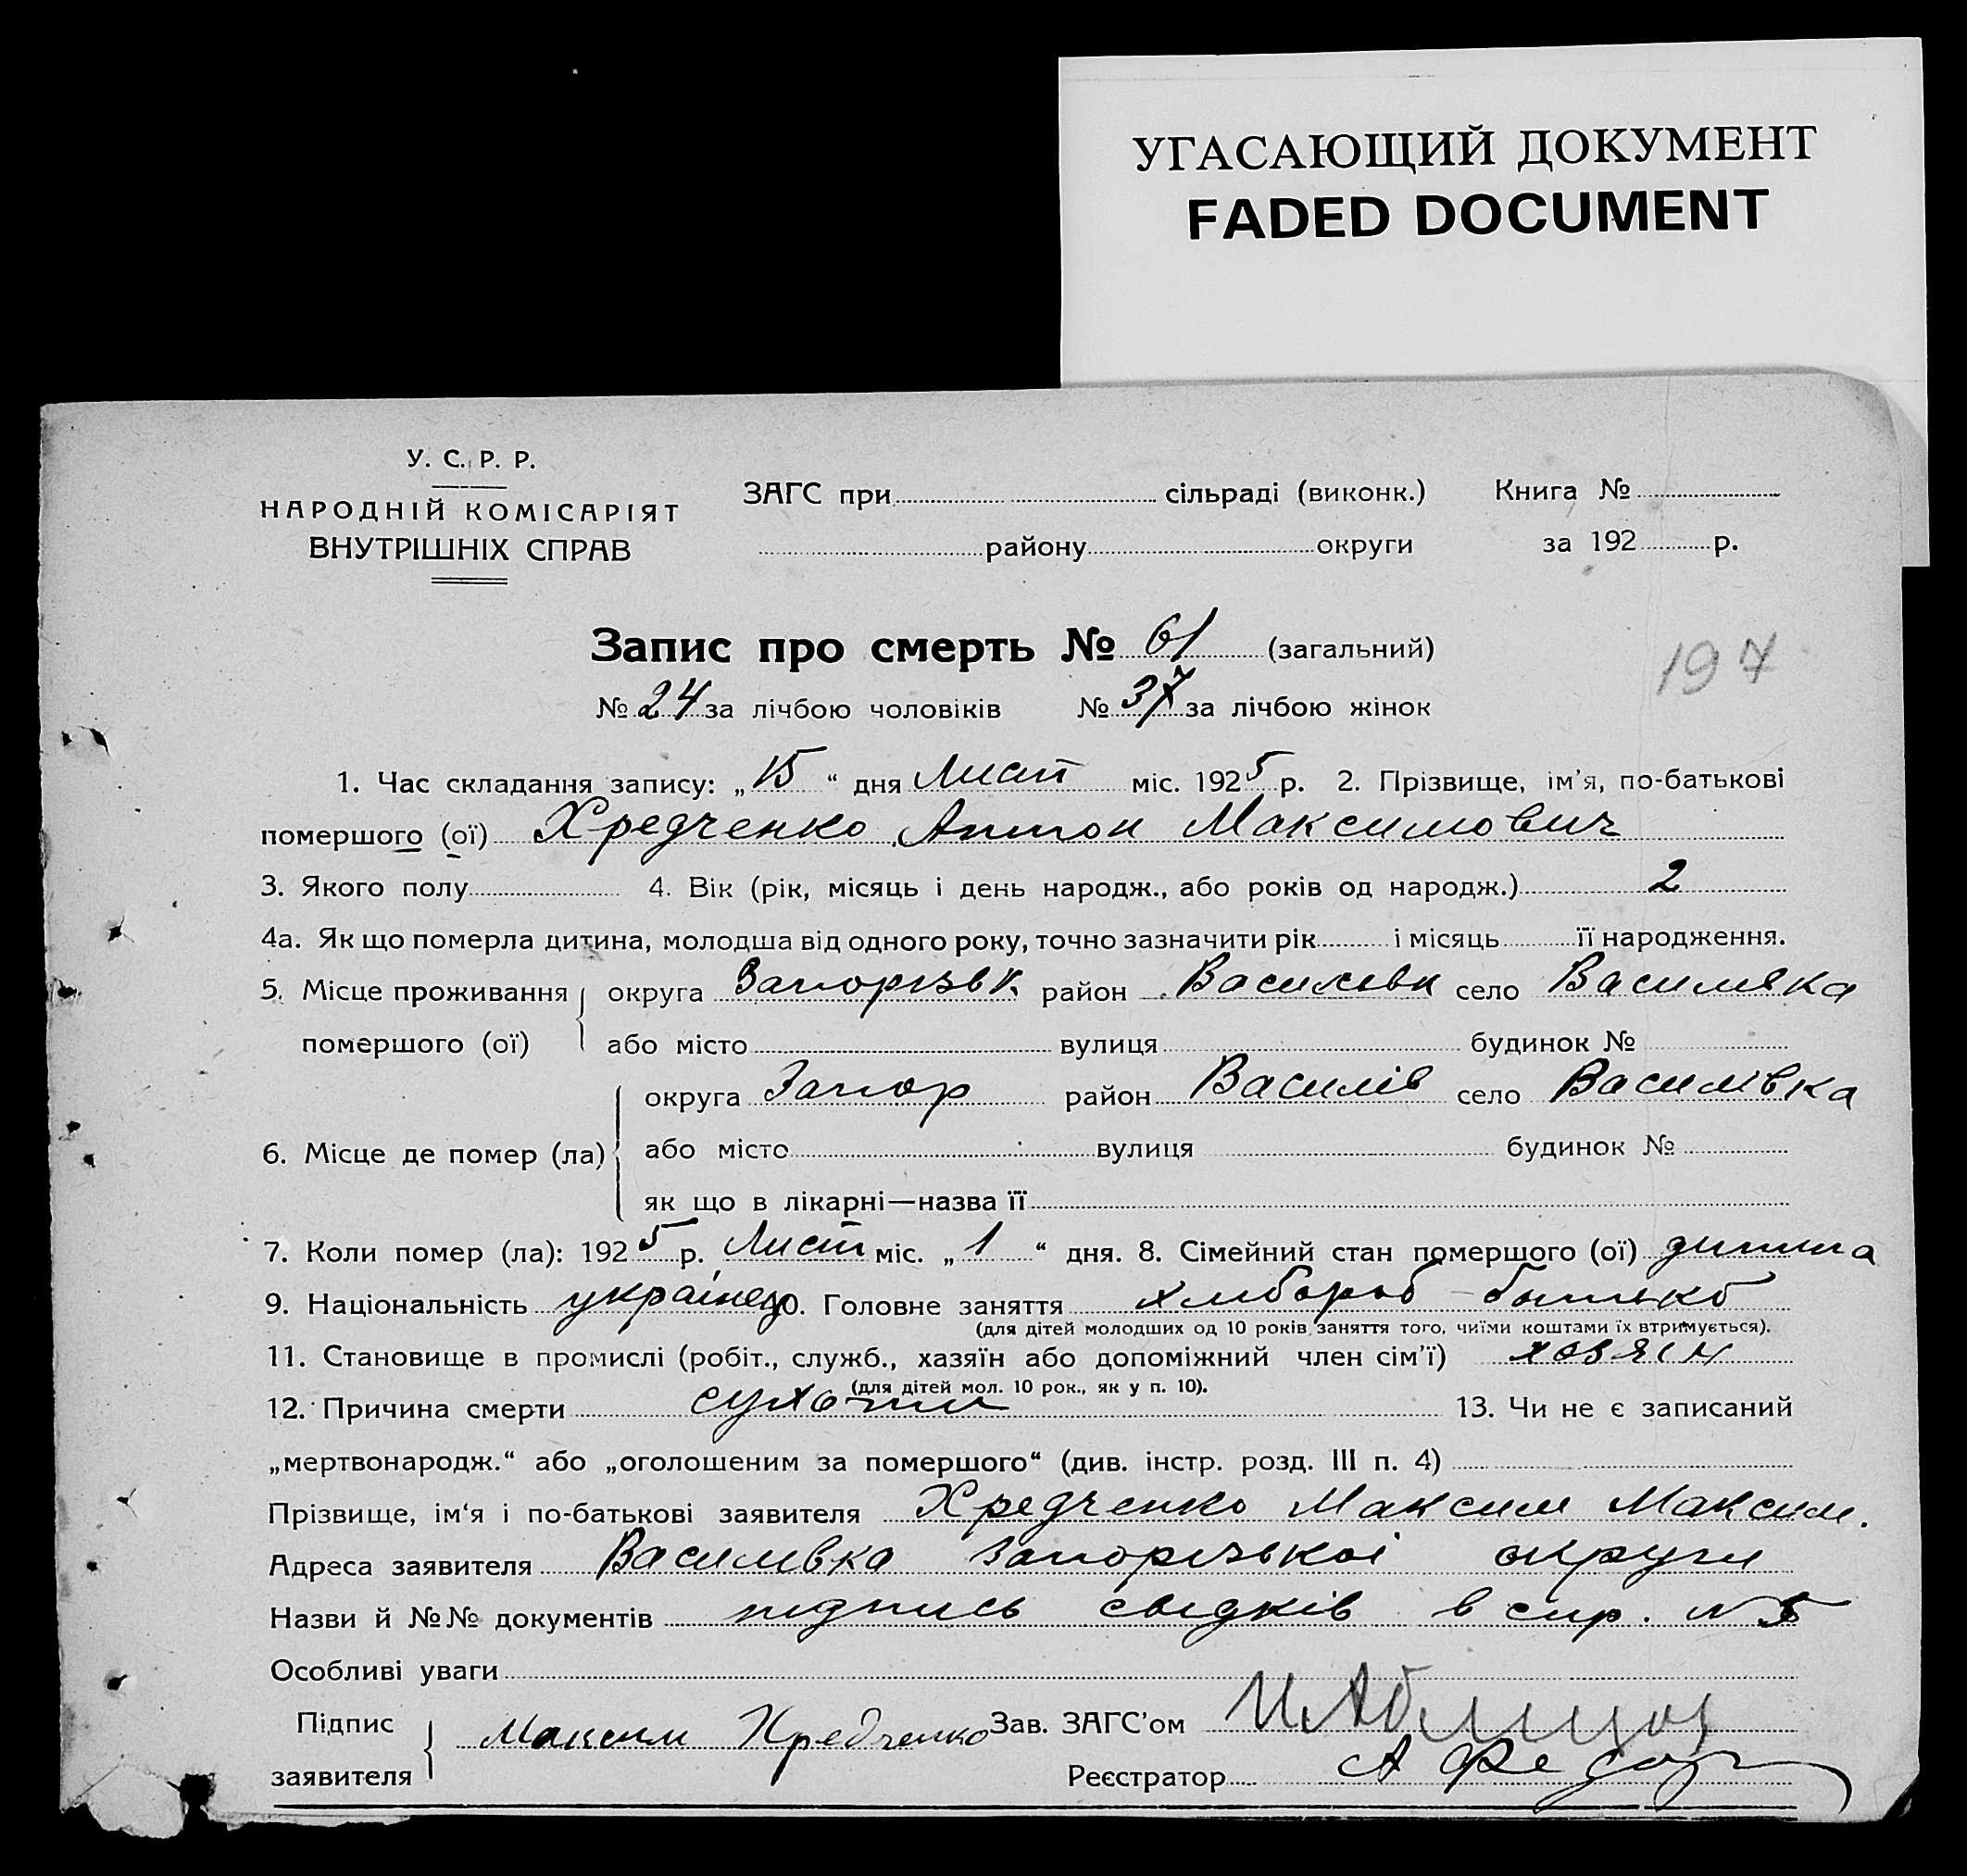 УГАСАЮЩИЙ ДОКУМЕНТ
FADED DOCUMENT
У. С. Р. Р.
НАРОДНІЙ КОМІСАРІЯТ
ВНУТРІШНІХ СПРАВ
ЗАГС при сільраді (виконк.) Книга №
району округи за 192 р.
Запис про смерть № 61 (загальний)
197
№ 24 за лічбою чоловіків № 37 за лічбою жінок
1. Час складання запису: „15“ дня Лист міс. 1925 р. 2. Прізвище, ім’я, по-батькові
помершого (ої) Хредченко Антон Максимович
3. Якого полу 4. Вік (рік, місяць і день народж., або років од народж.) 2
4а. Як що померла дитина, молодша від одного року, точно зазначити рік і місяць її народження.
5. Місце проживання округа Запорізьк. район Василівк село Василівка
помершого (ої) або місто вулиця будинок №
округа Запор район Василів село Василівка
6. Місце де помер (ла) або місто вулиця будинок №
як що в лікарні—назва її
7. Коли помер (ла): 1925 р. Лист міс. „1“ дня. 8. Сімейний стан помершого (ої) дитина
9. Національність українец 10. Головне заняття хлібороб - батько
(для дітей молодших од 10 років заняття того, чиїми коштами їх втримується).
11. Становище в промислі (робіт., служб., хазяїн або допоміжний член сім’ї) хозяїн
(для дітей мол. 10 рок., як у п. 10).
12. Причина смерти сухоти 13. Чи не є записаний
„мертвонародж.“ або „оголошеним за помершого“ (див. інстр. розд. III п. 4)
Прізвище, ім‘я і по-батькові заявителя Хредченко Максим Максим.
Адреса заявителя Василівка Запорізької округи
Назви й №№ документів підпись свідків в спр. № 5
Особливі уваги
Підпис заявителя Максим Хредченко Зав. ЗАГС’ом
Реєстратор А Федор